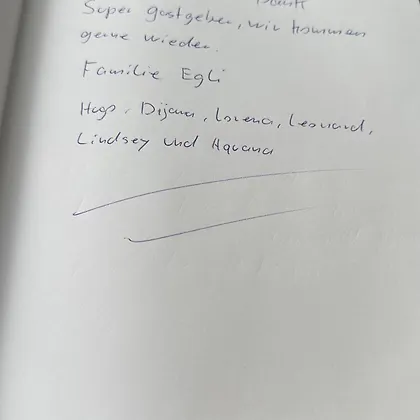 Super gastgeber, wir kommen
gerne wieder.
Familie Egli
Dijana, Lorena, Leonard,
Lindsey und